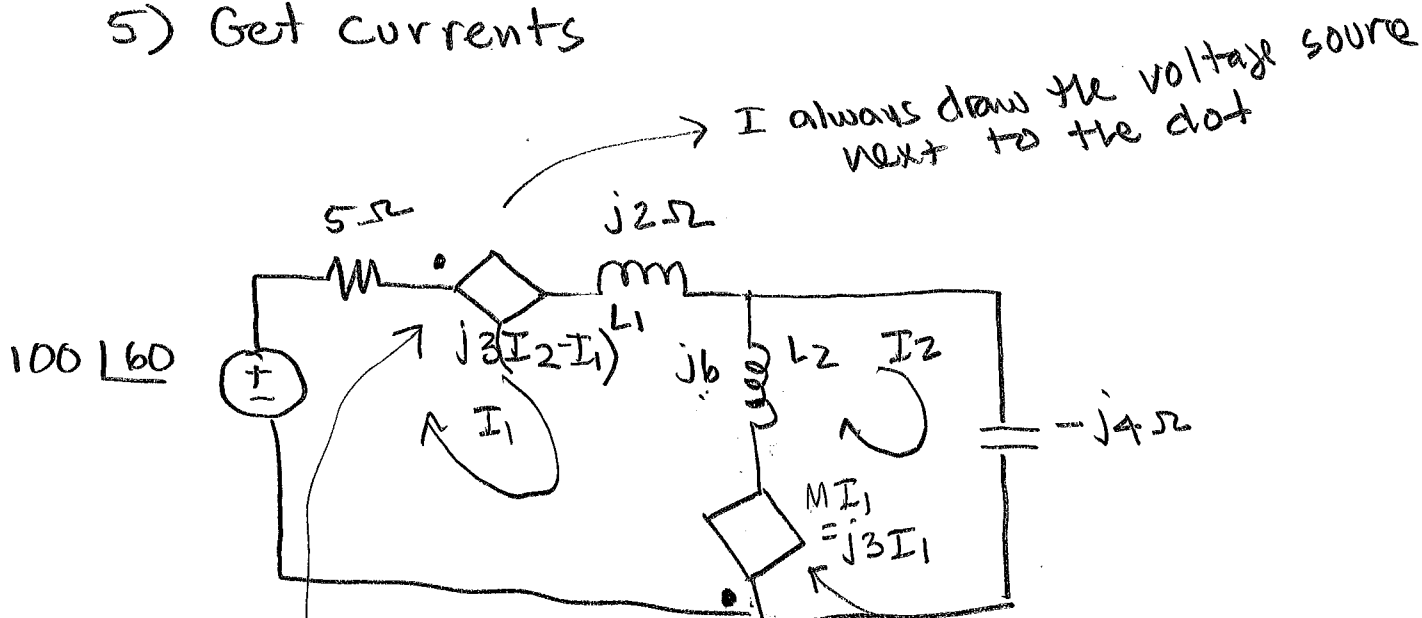 5) Get currents
I always draw the voltage soure
next to the dot
5Ω
j2Ω
L1
100 ∠60
+
-
j3(I2-I1)
I1
j6
L2
I2
-j4Ω
MI1
=j3I1